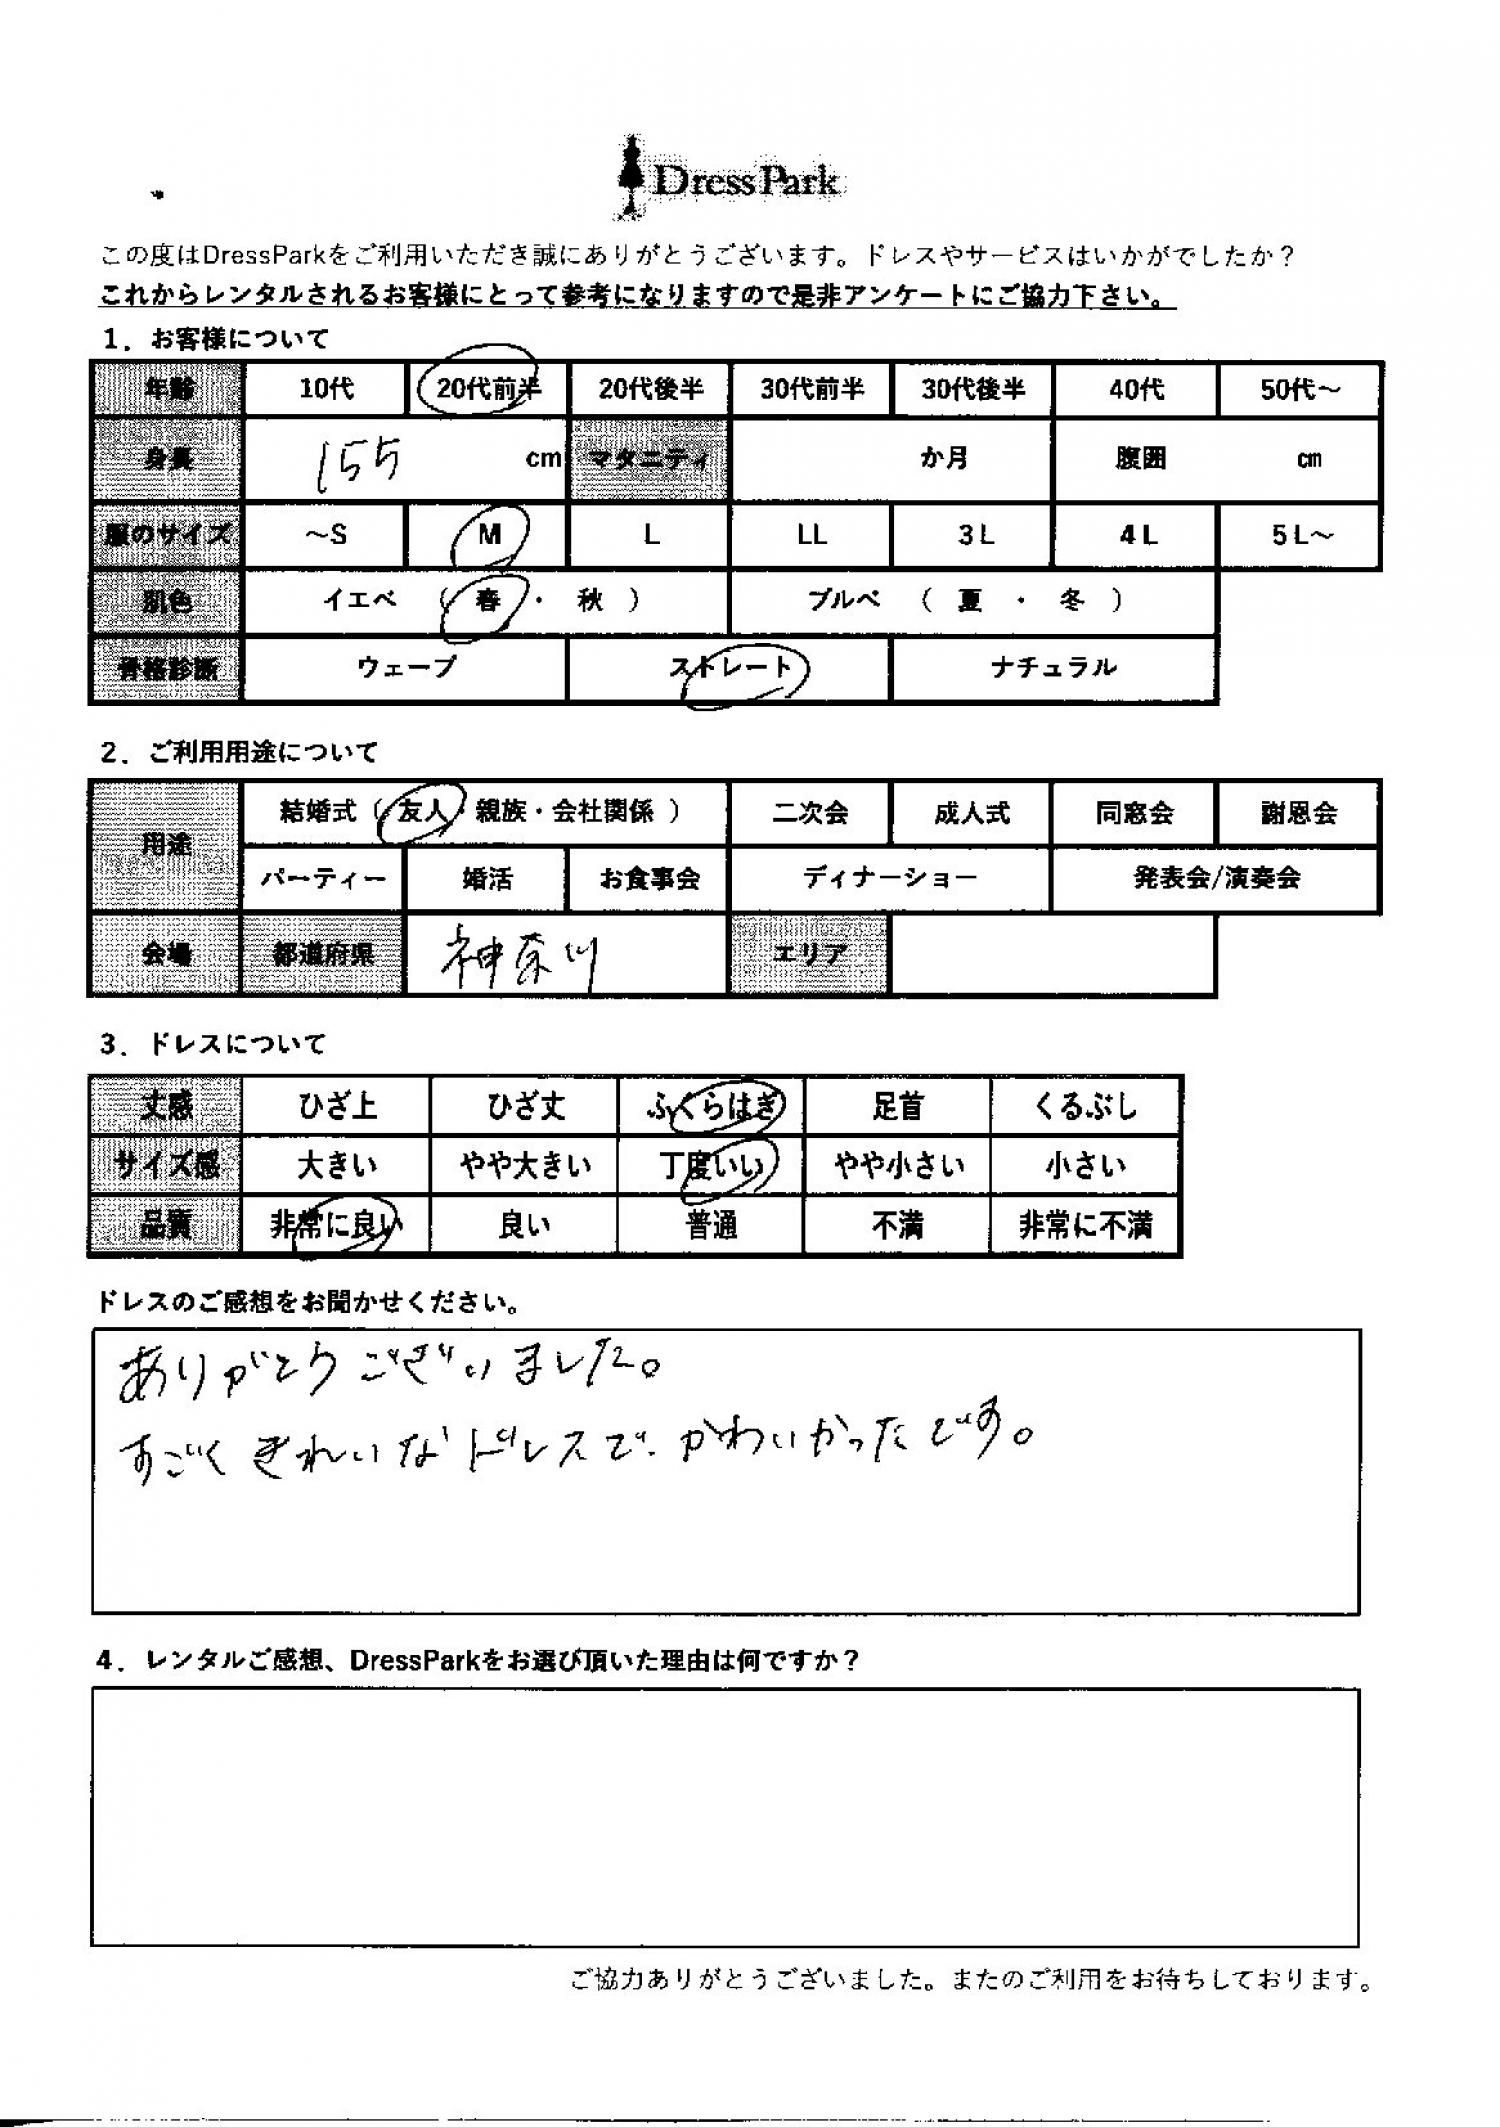 DressPark
この度はDressParkをご利用いただき誠にありがとうございます。ドレスやサービスはいかがでしたか？
これからレンタルされるお客様にとって参考になりますので是非アンケートにご協力下さい。
1．お客様について
年齢 10代 20代前半 20代後半 30代前半 30代後半 40代 50代～
身長 155 cm マタニティ か月 腹囲 cm
服のサイズ ～S M L LL 3L 4L 5L～
肌色 イエベ （ 春 ・ 秋 ） ブルベ （ 夏 ・ 冬 ）
骨格診断 ウェーブ ストレート ナチュラル
2．ご利用用途について
用途 結婚式（ 友人・親族・会社関係 ） 二次会 成人式 同窓会 謝恩会
パーティー 婚活 お食事会 ディナーショー 発表会/演奏会
会場 都道府県 神奈川 エリア
3．ドレスについて
丈感 ひざ上 ひざ丈 ふくらはぎ 足首 くるぶし
サイズ感 大きい やや大きい 丁度いい やや小さい 小さい
品質 非常に良い 良い 普通 不満 非常に不満
ドレスのご感想をお聞かせください。
ありがとうございました。
すごくきれいなドレスで、かわいかったです。
4．レンタルご感想、DressParkをお選び頂いた理由は何ですか？
ご協力ありがとうございました。またのご利用をお待ちしております。